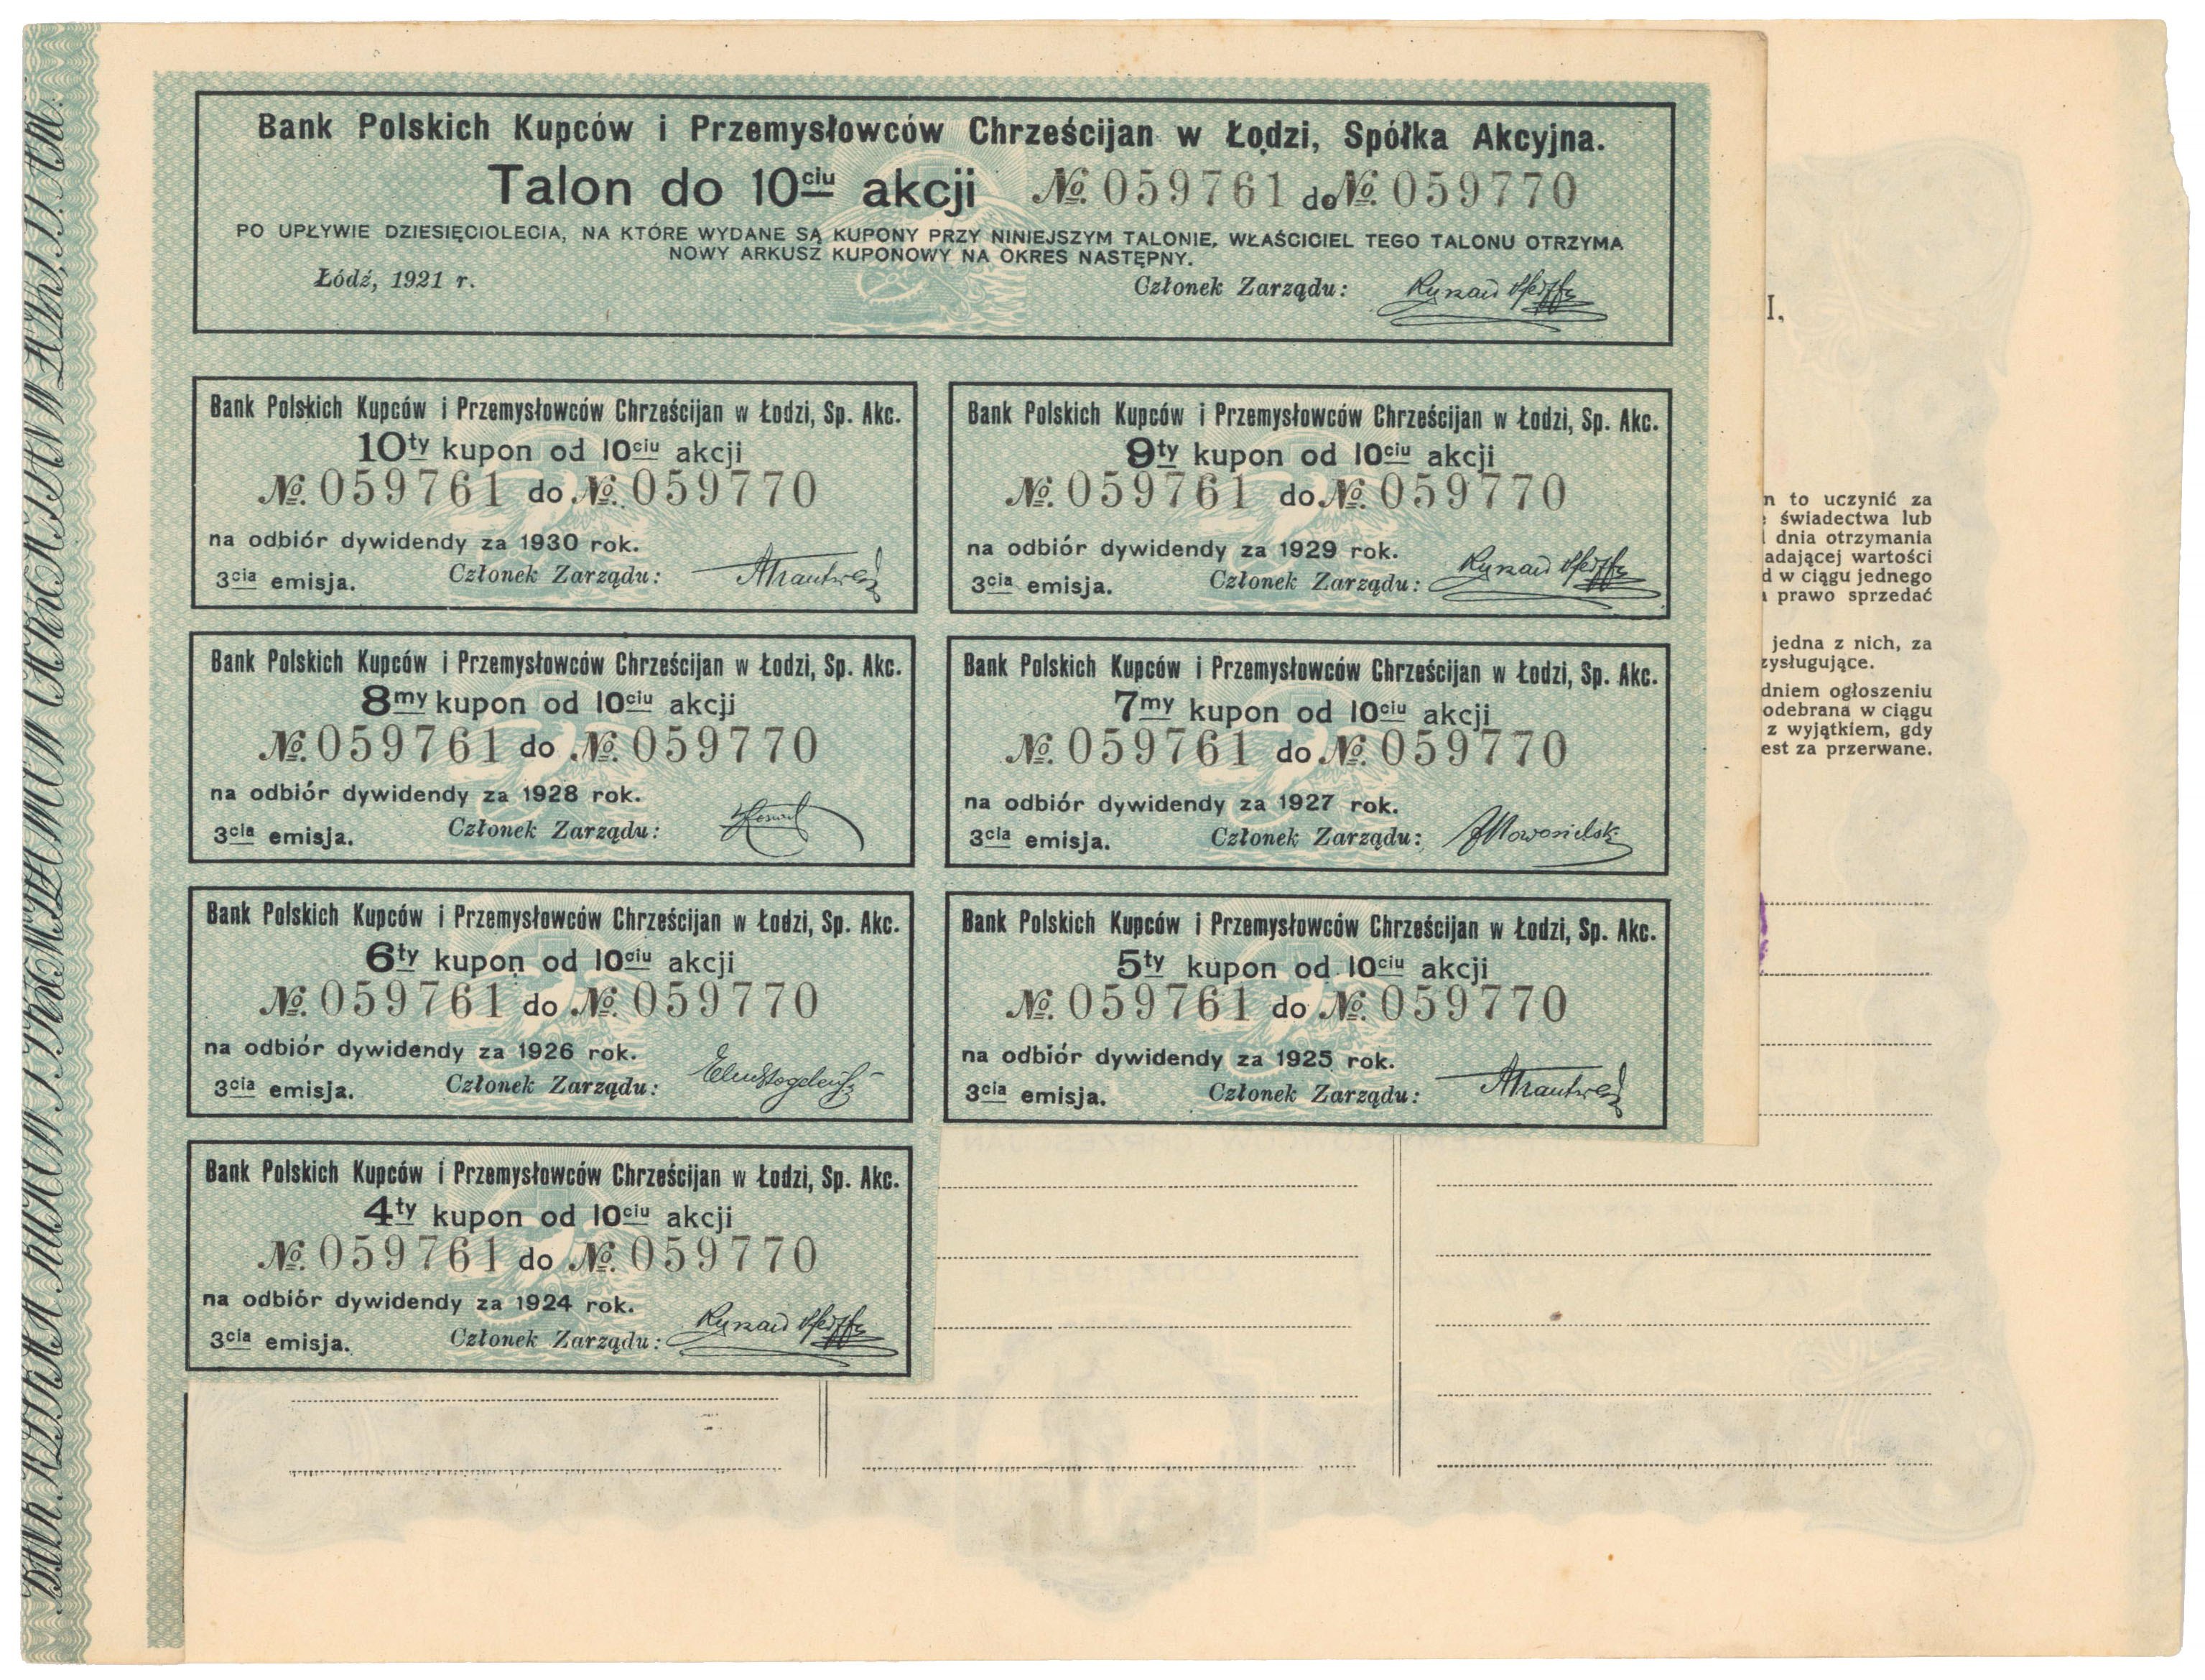 Bank Polskich Kupców i Przemysłowców Chrześcijan w Łodzi, Spółka Akcyjna.
Talon do 10ciu akcji № 059761 do № 059770
PO UPŁYWIE DZIESIĘCIOLECIA, NA KTÓRE WYDANE SĄ KUPONY PRZY NINIEJSZYM TALONIE, WŁAŚCICIEL TEGO TALONU OTRZYMA
NOWY ARKUSZ KUPONOWY NA OKRES NASTĘPNY.
Łódź, 1921 r. Członek Zarządu:
Bank Polskich Kupców i Przemysłowców Chrześcijan w Łodzi, Sp. Akc.
10ty kupon od 10ciu akcji
№ 059761 do № 059770
na odbiór dywidendy za 1930 rok.
3cia emisja. Członek Zarządu:
Bank Polskich Kupców i Przemysłowców Chrześcijan w Łodzi, Sp. Akc.
9ty kupon od 10ciu akcji
№ 059761 do № 059770
na odbiór dywidendy za 1929 rok.
3cia emisja. Członek Zarządu:
Bank Polskich Kupców i Przemysłowców Chrześcijan w Łodzi, Sp. Akc.
8my kupon od 10ciu akcji
№ 059761 do № 059770
na odbiór dywidendy za 1928 rok.
3cia emisja. Członek Zarządu:
Bank Polskich Kupców i Przemysłowców Chrześcijan w Łodzi, Sp. Akc.
7my kupon od 10ciu akcji
№ 059761 do № 059770
na odbiór dywidendy za 1927 rok.
3cia emisja. Członek Zarządu:
Bank Polskich Kupców i Przemysłowców Chrześcijan w Łodzi, Sp. Akc.
6ty kupon od 10ciu akcji
№ 059761 do № 059770
na odbiór dywidendy za 1926 rok.
3cia emisja. Członek Zarządu:
Bank Polskich Kupców i Przemysłowców Chrześcijan w Łodzi, Sp. Akc.
5ty kupon od 10ciu akcji
№ 059761 do № 059770
na odbiór dywidendy za 1925 rok.
3cia emisja. Członek Zarządu:
Bank Polskich Kupców i Przemysłowców Chrześcijan w Łodzi, Sp. Akc.
4ty kupon od 10ciu akcji
№ 059761 do № 059770
na odbiór dywidendy za 1924 rok.
3cia emisja. Członek Zarządu:
I.
n to uczynić za
świadectwa lub
dnia otrzymania
adającej wartości
d w ciągu jednego
prawo sprzedać
jedna z nich, za
zysługujące.
dniem ogłoszeniu
odebrana w ciągu
z wyjątkiem, gdy
est za przerwane.